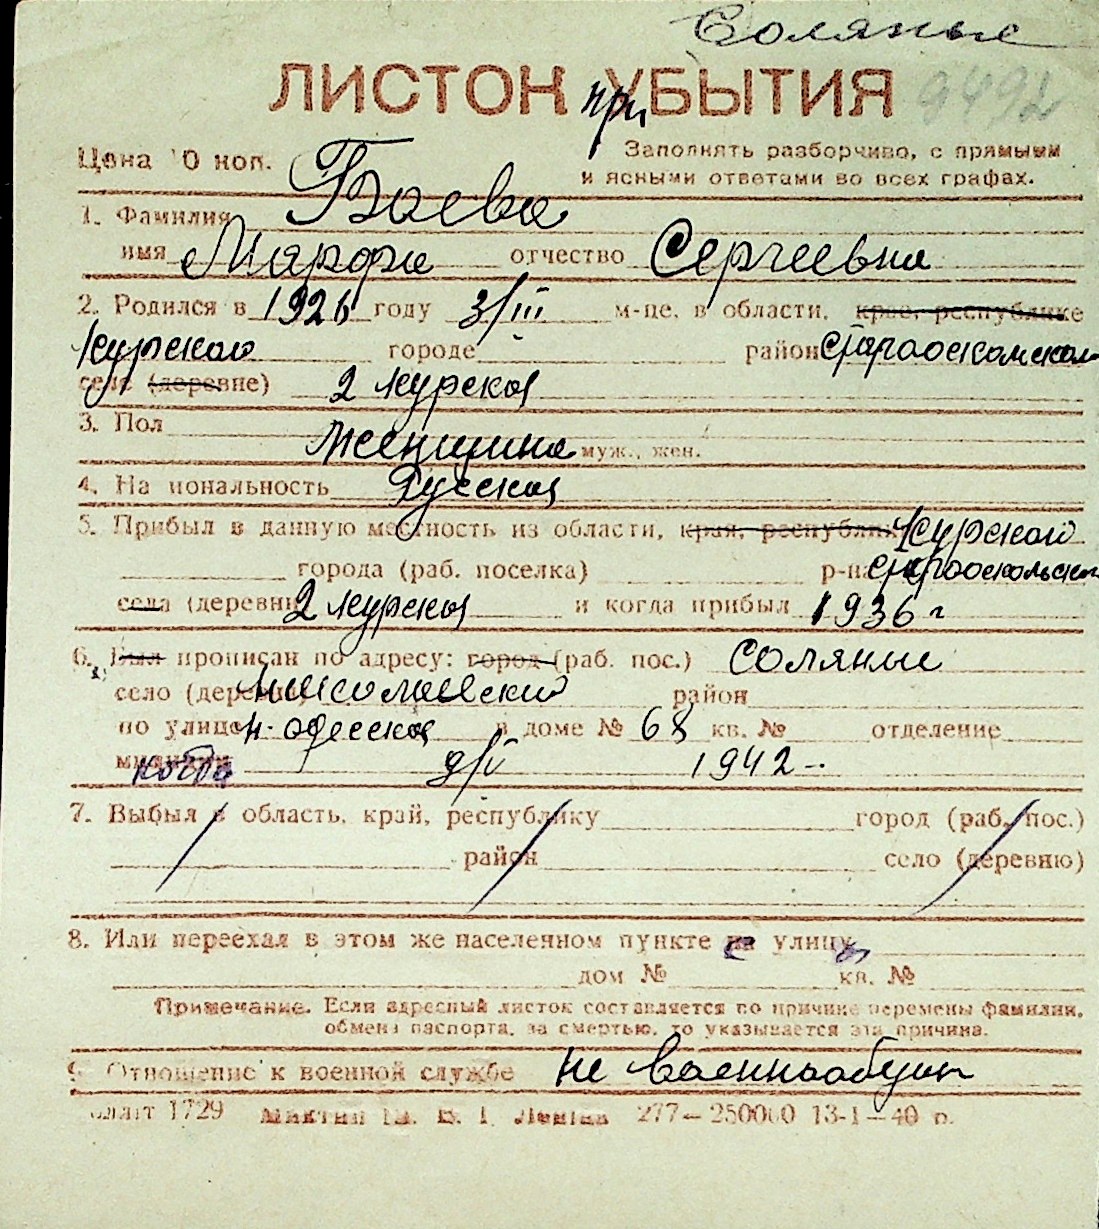 Соляные
ЛИСТОК при УБЫТИЯ 9492
Цена 10 коп. Заполнять разборчиво, с прямыми
и ясными ответами во всех графах.
1. Фамилия Боева
имя Марфа отчество Сергеевна
2. Родился в 1926 году 3/III м-це, в области, крае, республике
Курского городе район Старооскольском
селе (деревне) 2 Курская
3. Пол Женщина муж., жен.
4. Национальность Русская
5. Прибыл в данную местность из области, края, республики Курского
города (раб. поселка) р-на Старооскольско
села (деревни) 2 Курская и когда прибыл 1936 г
6. Был прописан по адресу: город (раб. пос.) Соляные
село (деревня) Николаевский район
по улице Н-Одесская в доме № 68 кв. № отделение
милиции когда 9/V 1942
7. Выбыл в область, край, республику город (раб. пос.)
район село (деревню)
8. Или переехал в этом же населенном пункте на улицу
дом № кв. №
Примечание. Если адресный листок составляется по причине перемены фамилии,
обмена паспорта, за смертью, то указывается эта причина.
9. Отношение к военной службе не военнообяз
1729 277—250000 13-1—40 р.